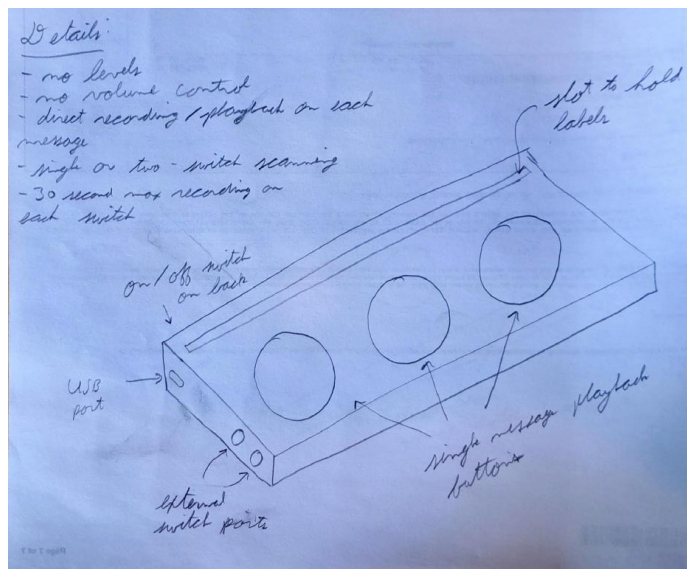 Details:
- no levels
- no volume control
- direct recording/playback on each
message
- single or two-switch scanning
- 30 second max recording on
each switch
slot to hold
labels
on/off switch
on back
USB
port
external
switch ports
single message playback
buttons
Page 1 of 1